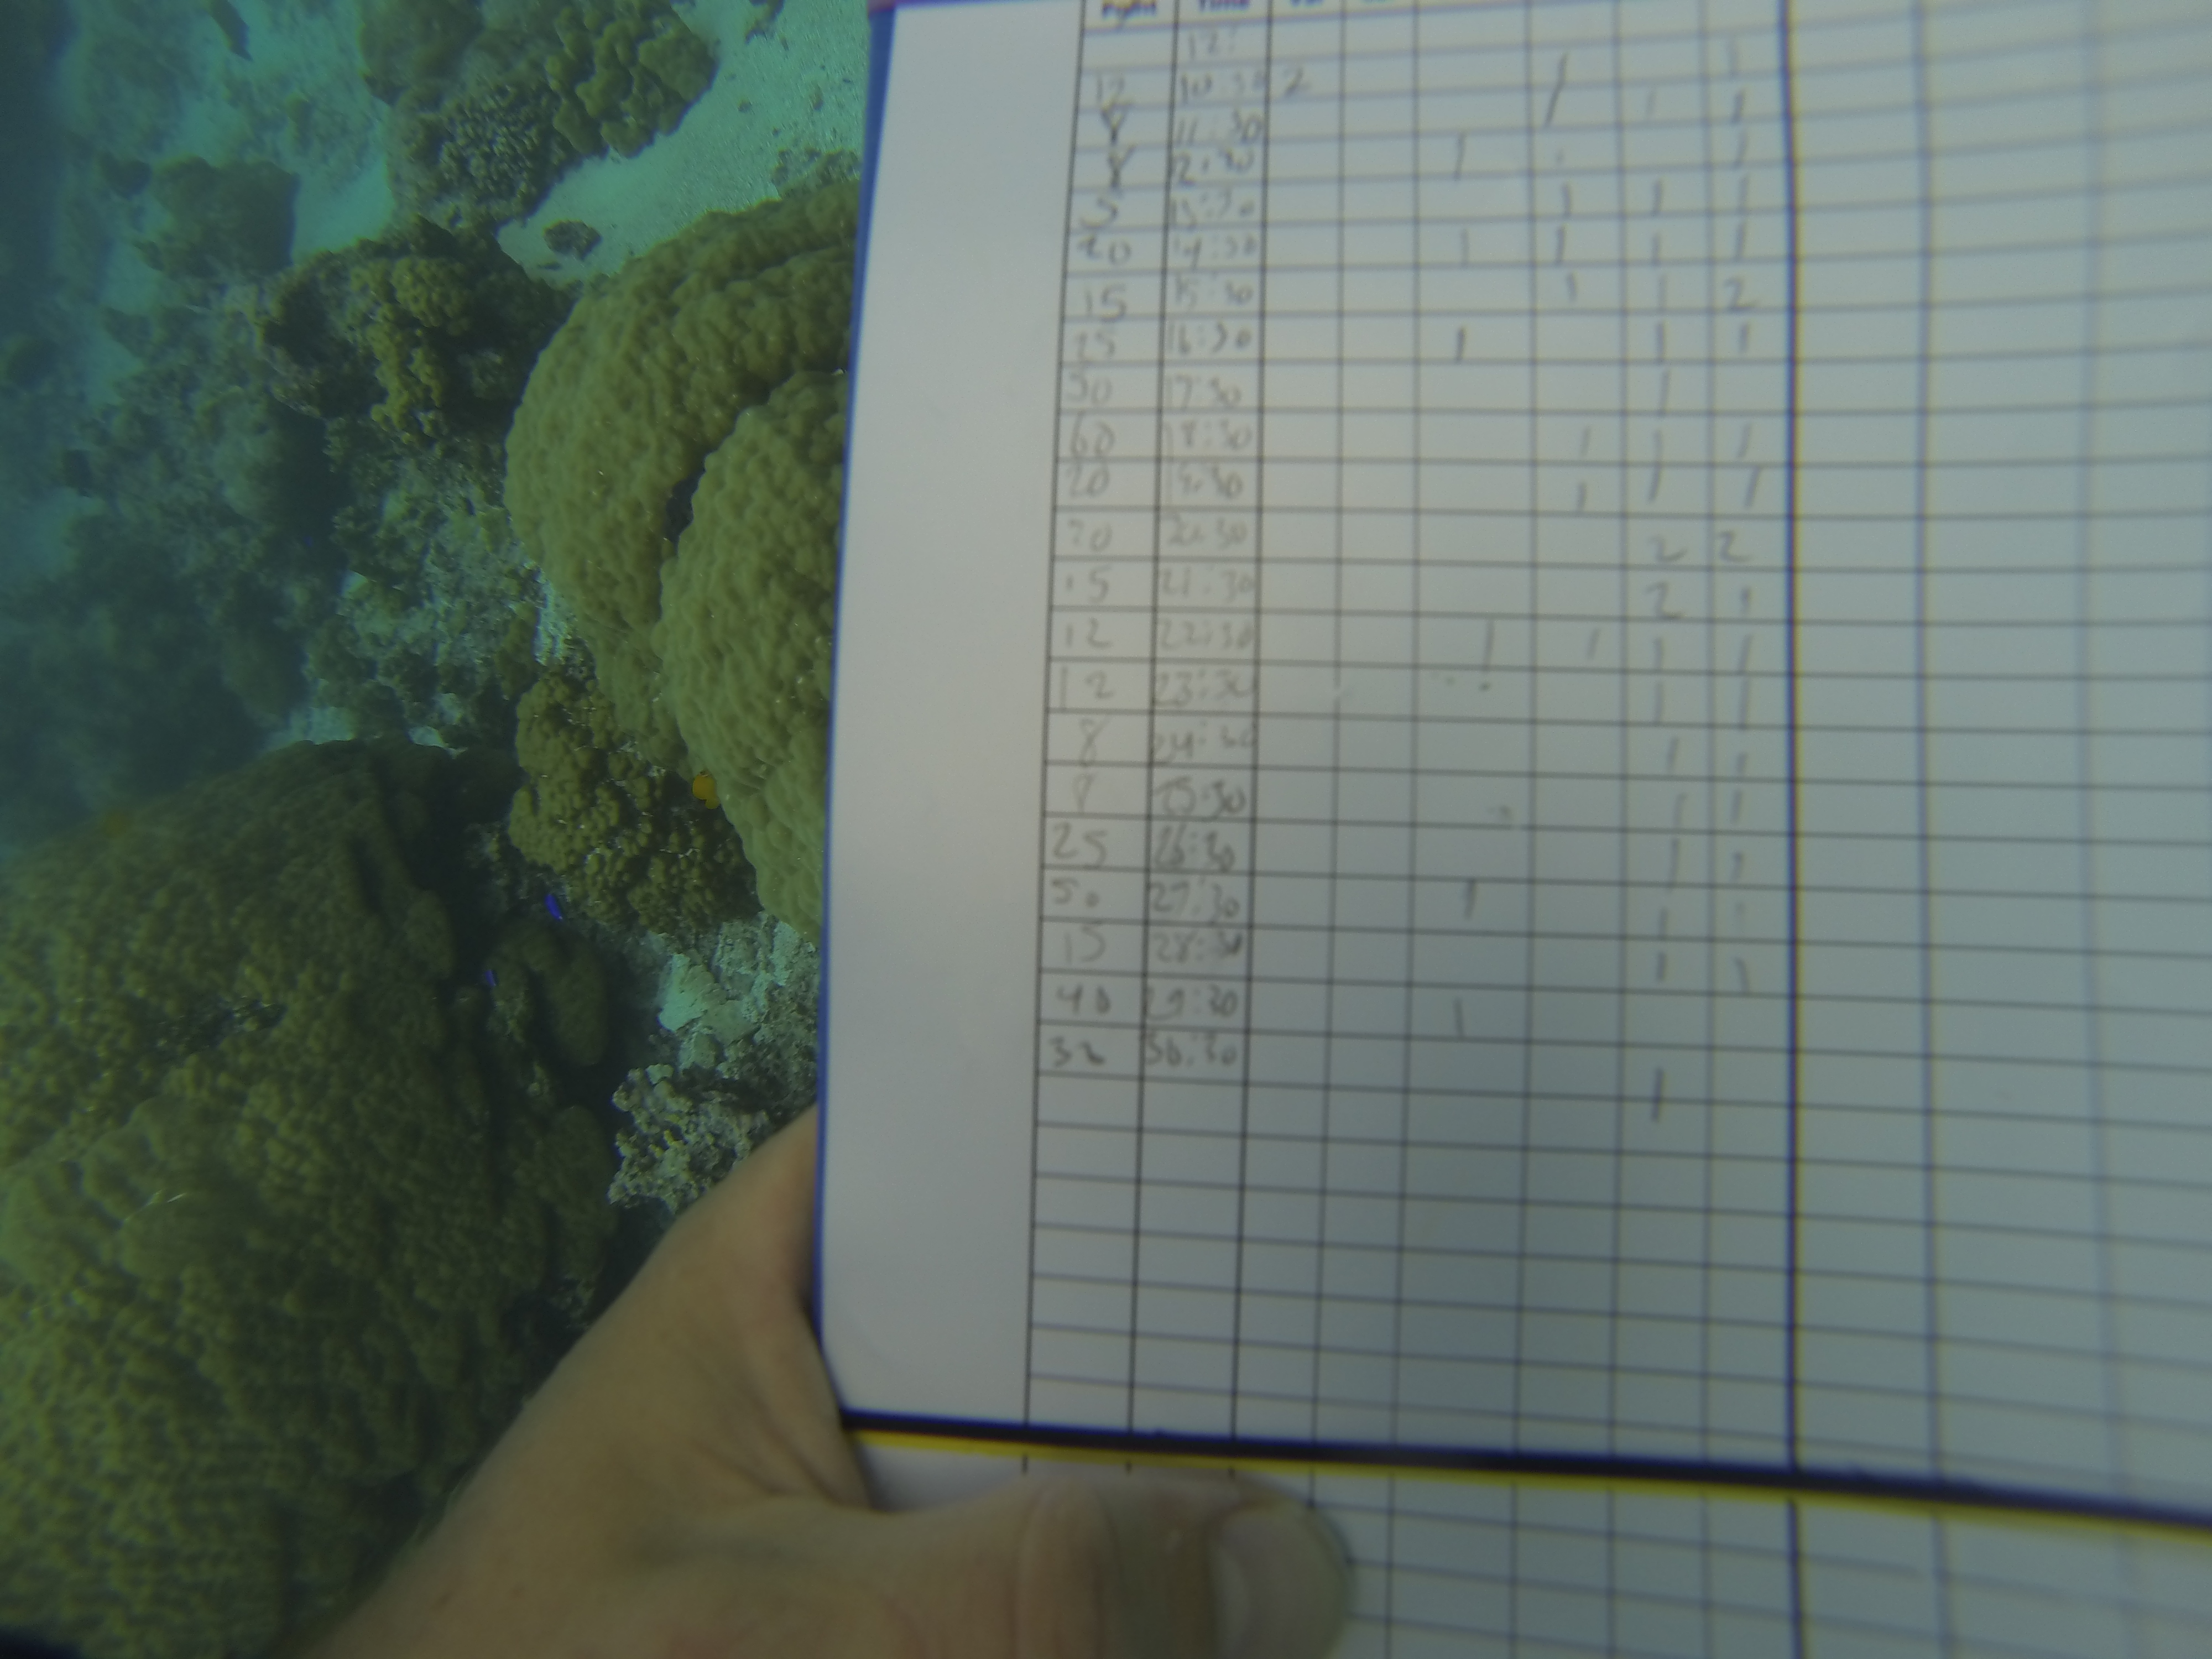 Point Time
12:
12 10:30 2 1
8 11:30 1 1 1
8 12:30 1 1
5 13:30 1 1 1
20 14:30 1 1 1 1
15 15:30 1 1 2
25 16:30 1 1 1
50 17:30 1
60 18:30 1 1 1
20 19:30 1 1 1
20 20:30 2 2
15 21:30 2 1
12 22:30 1 1 1 1
12 23:30 1 1
8 24:30 1 1
8 25:30 1 1
25 26:30 1 1
50 27:30 1 1 1
15 28:30 1 1
40 29:30 1
32 30:30
1